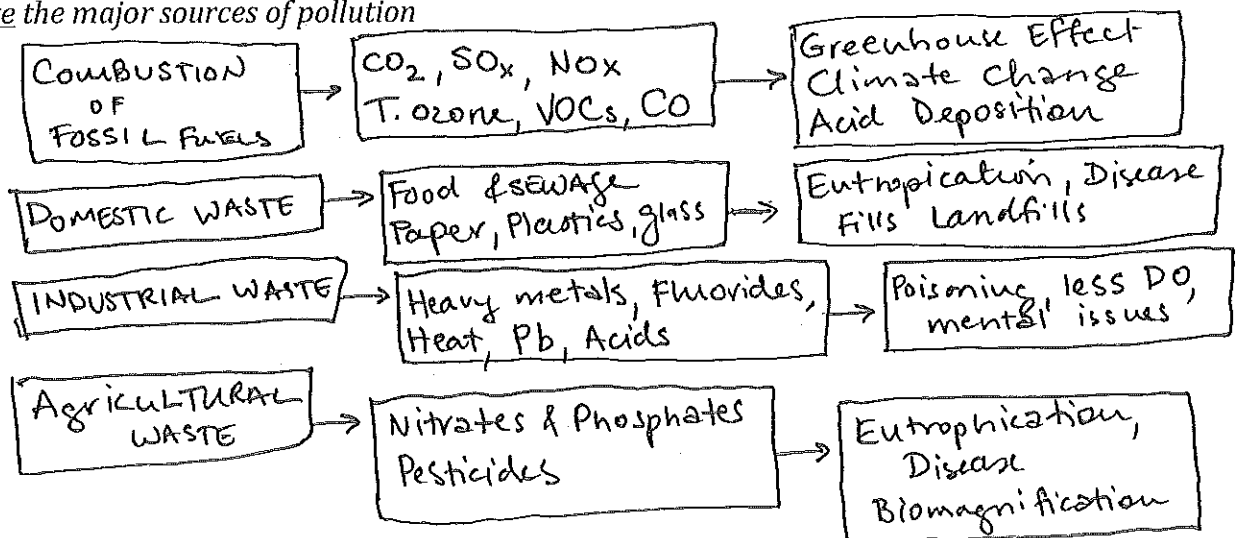 the major sources of pollution
COMBUSTION
OF
FOSSIL FUELS
CO₂, SOx, NOx
T. ozone, VOCs, CO
Greenhouse Effect
Climate Change
Acid Deposition
DOMESTIC WASTE
Food & SEWAGE
Paper, Plastics, glass
Eutropication, Disease
Fills Landfills
INDUSTRIAL WASTE
Heavy metals, Fluorides,
Heat, Pb, Acids
Poisoning, less DO,
mental issues
AgriCULTURAL
WASTE
Nitrates & Phosphates
Pesticides
Eutrophication,
Disease
Biomagnification